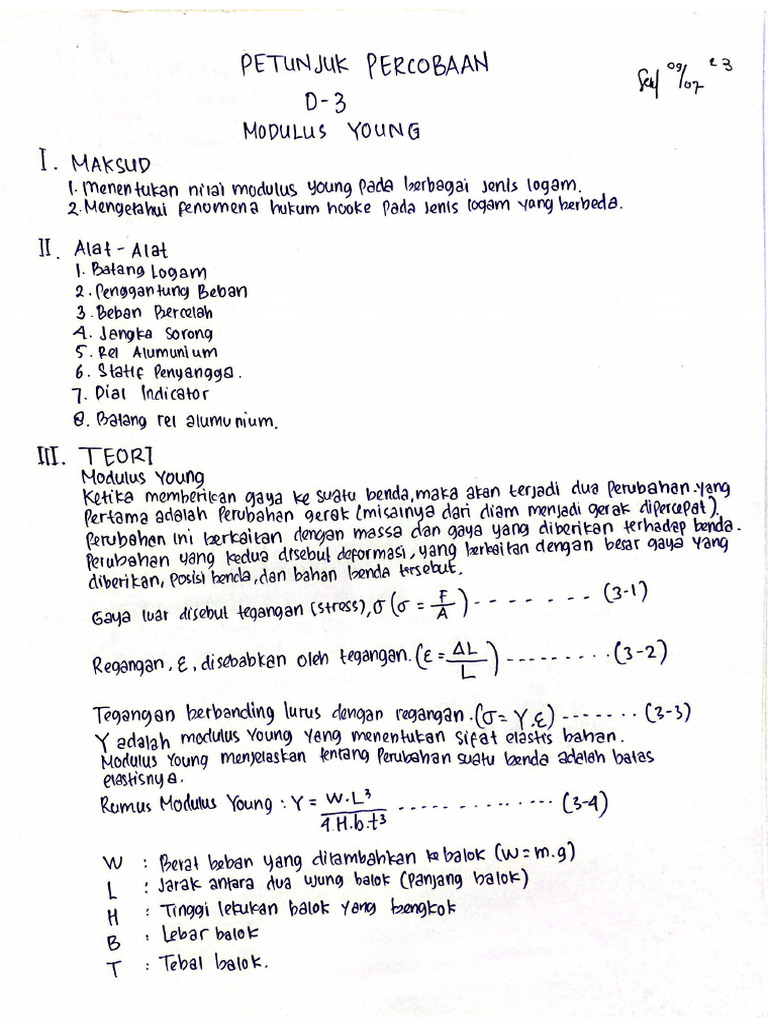 PETUNJUK PERCOBAAN
09/02 23
D-3
MODULUS YOUNG
I. MAKSUD
1. Menentukan nilai modulus young pada berbagai jenis logam.
2. Mengetahui fenomena hukum hooke pada jenis logam yang berbeda.
II. Alat-Alat
1. Batang Logam
2. Penggantung Beban
3. Beban Bercelah
4. Jangka Sorong
5. Rel Alumunium
6. Statif Penyangga.
7. Dial Indicator
8. Batang rel alumunium.
III. TEORI
Modulus Young
Ketika memberikan gaya ke suatu benda, maka akan terjadi dua perubahan. yang
pertama adalah perubahan gerak (misalnya dari diam menjadi gerak dipercepat).
perubahan ini berkaitan dengan massa dan gaya yang diberikan terhadap benda.
perubahan yang kedua disebut deformasi, yang berkaitan dengan besar gaya yang
diberikan, posisi benda, dan bahan benda tersebut.
Gaya luar disebut tegangan (stress), σ (σ = F/A) -------- (3-1)
Regangan, ε, disebabkan oleh tegangan. (ε = ΔL/L) ---------- (3-2)
Tegangan berbanding lurus dengan regangan. (σ = Y.ε) ------- (3-3)
Y adalah modulus Young yang menentukan sifat elastis bahan.
Modulus Young menjelaskan tentang perubahan suatu benda adalah batas
elastisnya.
Rumus Modulus Young : Y = W.L³/4.H.b.t³ --------------- (3-4)
W : Berat beban yang ditambahkan ke balok (W = m.g)
L : Jarak antara dua ujung balok (panjang balok)
H : Tinggi lekukan balok yang bengkok
B : Lebar balok
T : Tebal balok.